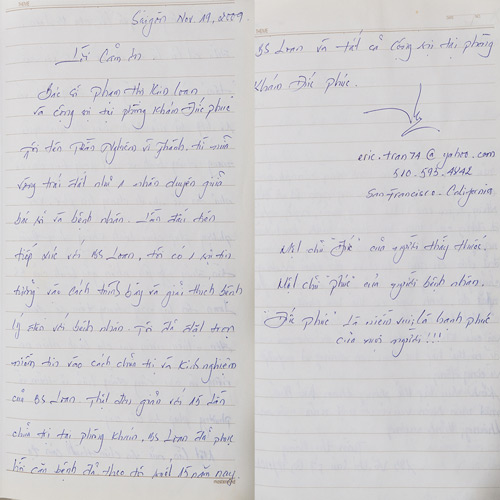 Saigon Nov 19, 2009.
Lời Cảm ơn.
Bác sĩ Phạm Thị Kim Loan
và Công sự tại phòng Khám Đức phúc
Tôi tên Trần Nghiêm Vi Thành, từ nửa
vòng trái đất như 1 nhân duyên giữa
bác sĩ và bệnh nhân. Lần đầu tiên
tiếp xúc với BS Loan, tôi có 1 sự tin
tưởng vào cách trình bày và giải thích bệnh
lý đến với bệnh nhân. Tôi đã đặt trọn
niềm tin vào cách chữa trị và Kinh nghiệm
của BS Loan. Thật đơn giản với 15 lần
chữa trị tại phòng khám, BS Loan đã phục
hồi căn bệnh đã theo tôi suốt 15 năm nay
BS Loan và tất cả Công sự tại phòng
Khám Đức phúc.
eric.tran74@yahoo.com
510.595.4842
San Francisco. California
Một chữ "Đức" của người thầy thuốc.
Một chữ "phúc" của người bệnh nhân.
"Đức phúc" Là niềm vui, là hạnh phúc
của mọi người!!!